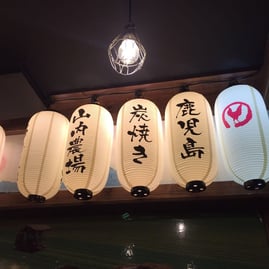 山内農場
炭焼き
鹿児島